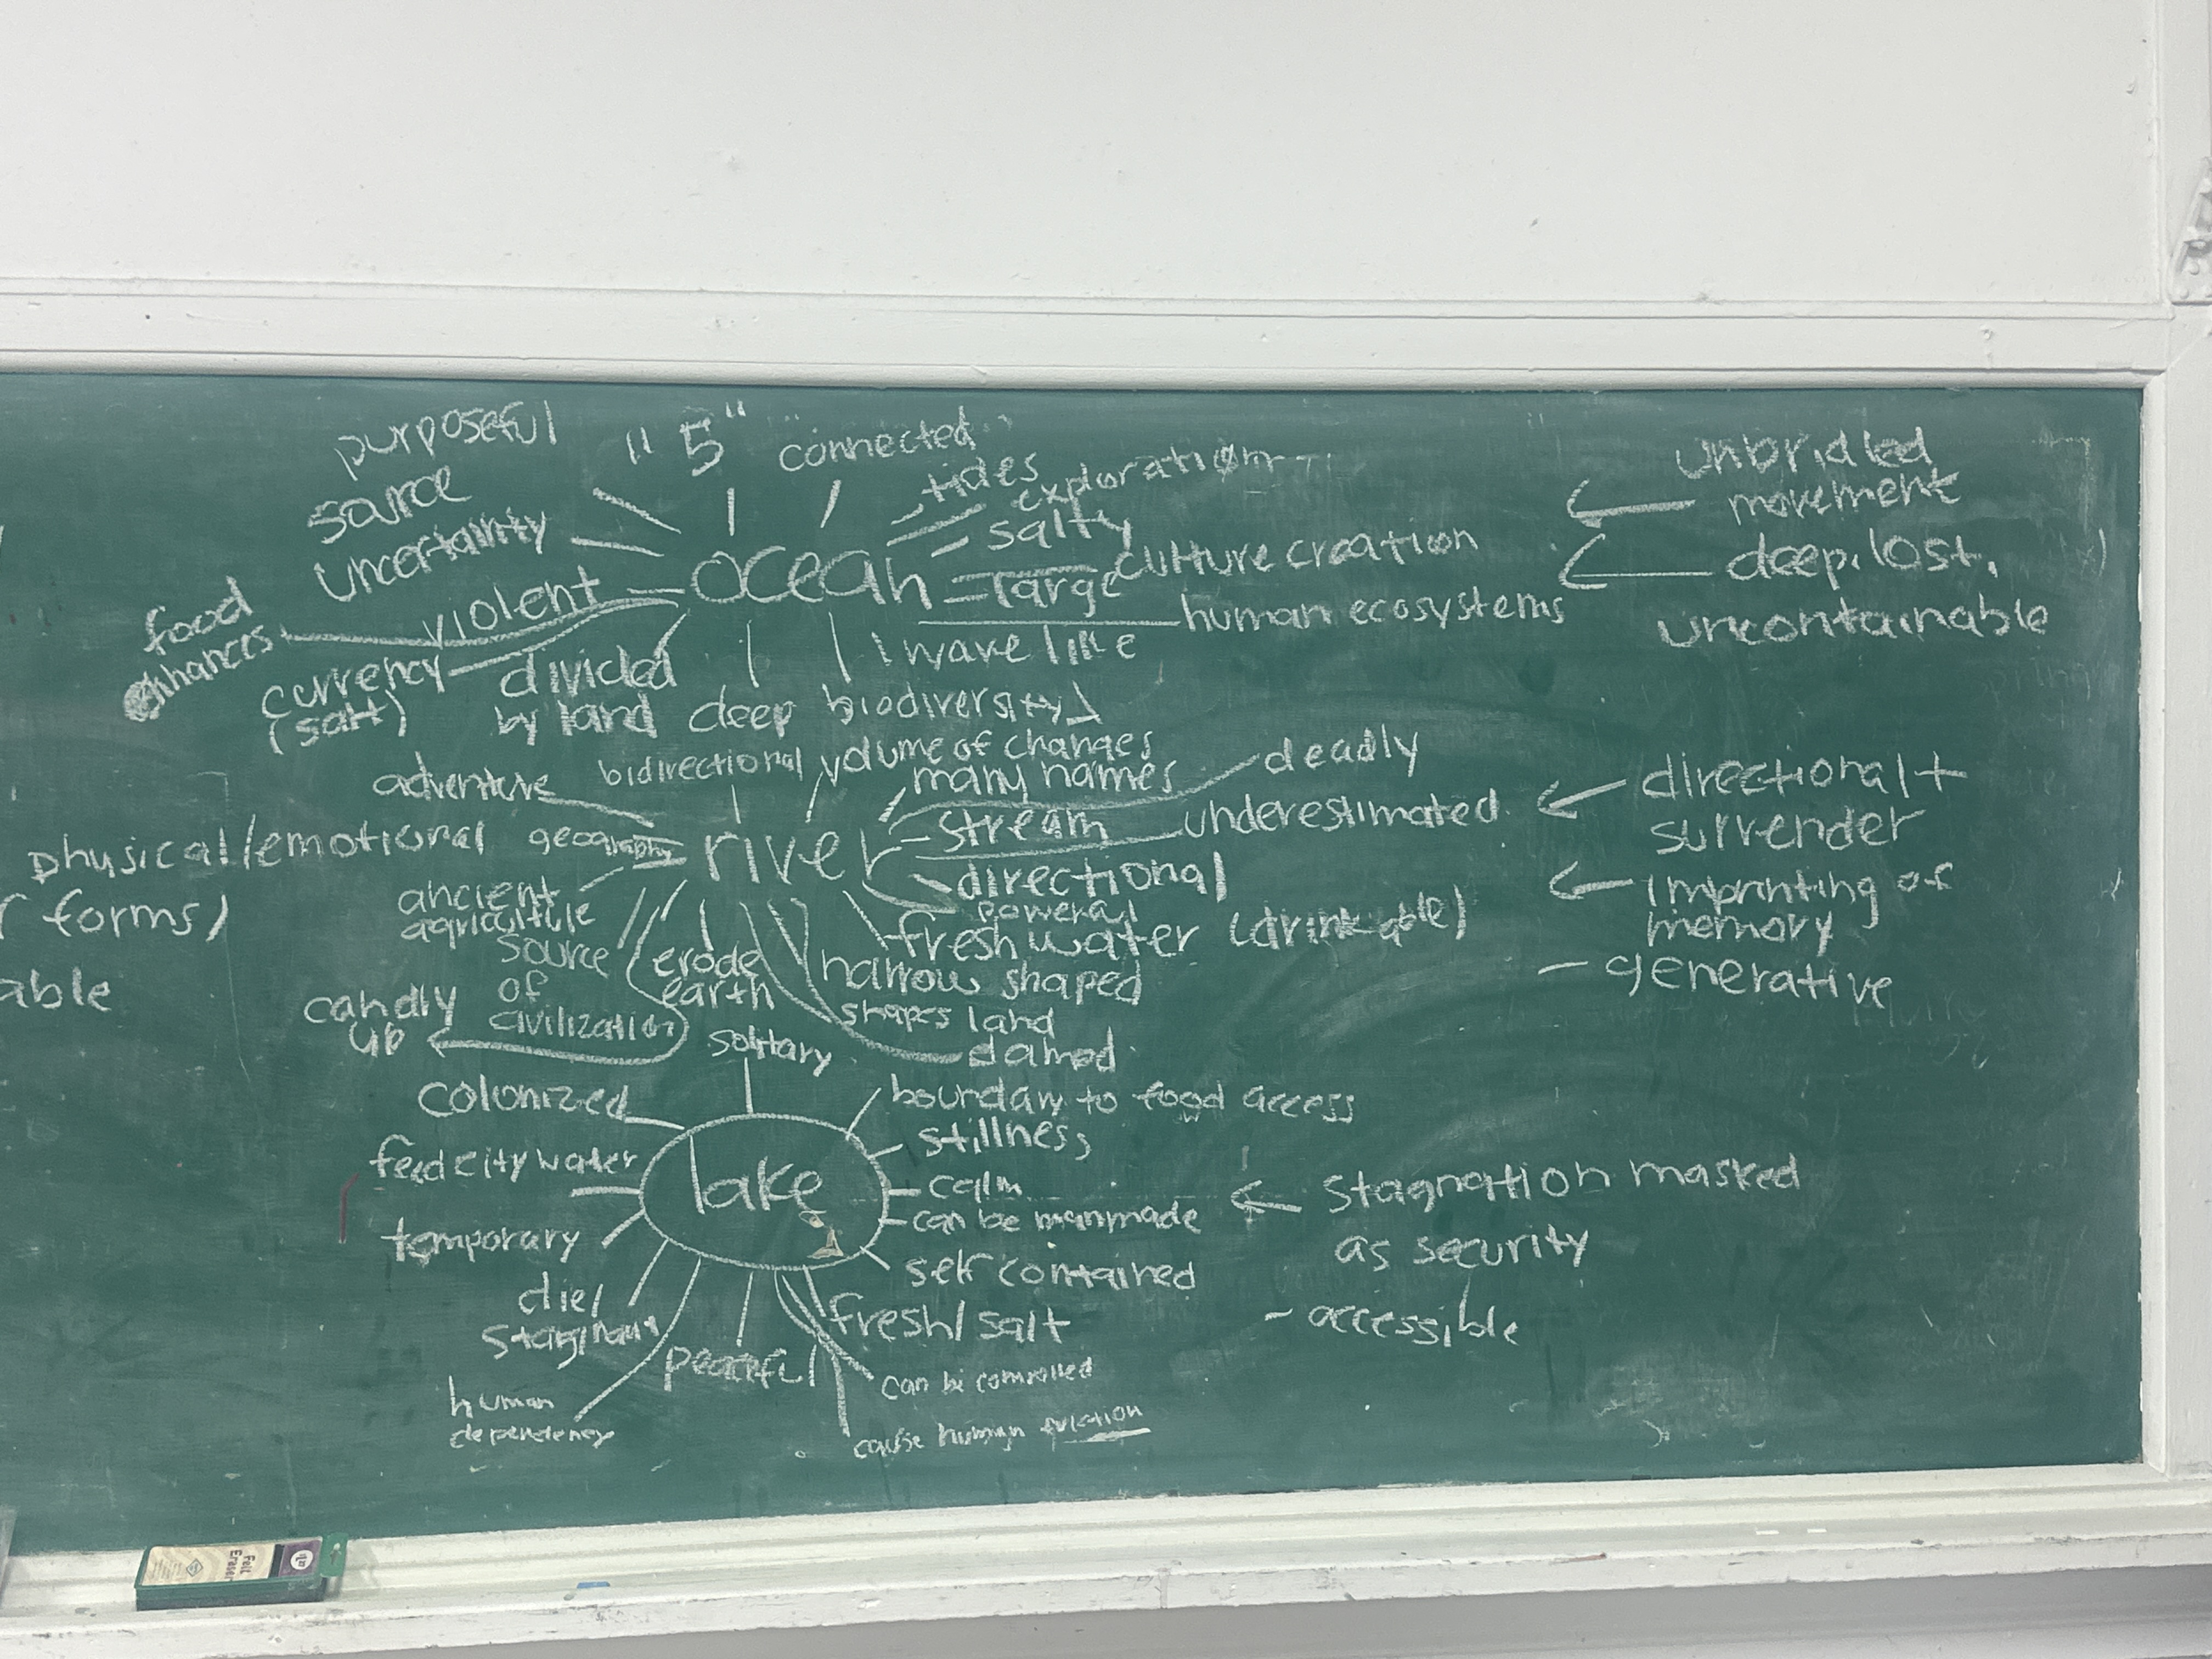 purposeful
" 5 "
connected
source
tides
exploration
uncertainity
salty
ocean
culture creation
violent
large
human ecosystems
food
enhances
wave like
currency
(salt)
divided
by land
deep
biodiversity
unbridled
movement
deep, lost,
uncontainable
adventure
bidirectional
volume of changes
many names
deadly
physical/emotional geography
river
stream
underestimated
forms)
ancient
agriculture
directional
powerful
source
of
civilization
erode
earth
fresh water (drinkable)
narrow shaped
able
candly
up
shapes land
damed
directional +
surrender
imprinting of
memory
- generative
solitary
colonized
boundary to food access
stillness
feed city water
lake
calm
can be manmade
temporary
self contained
die/
fresh/salt
peaceful
can be controlled
human
dependency
cause human eviction
stagnation masked
as security
- accessible
Felt
Eraser